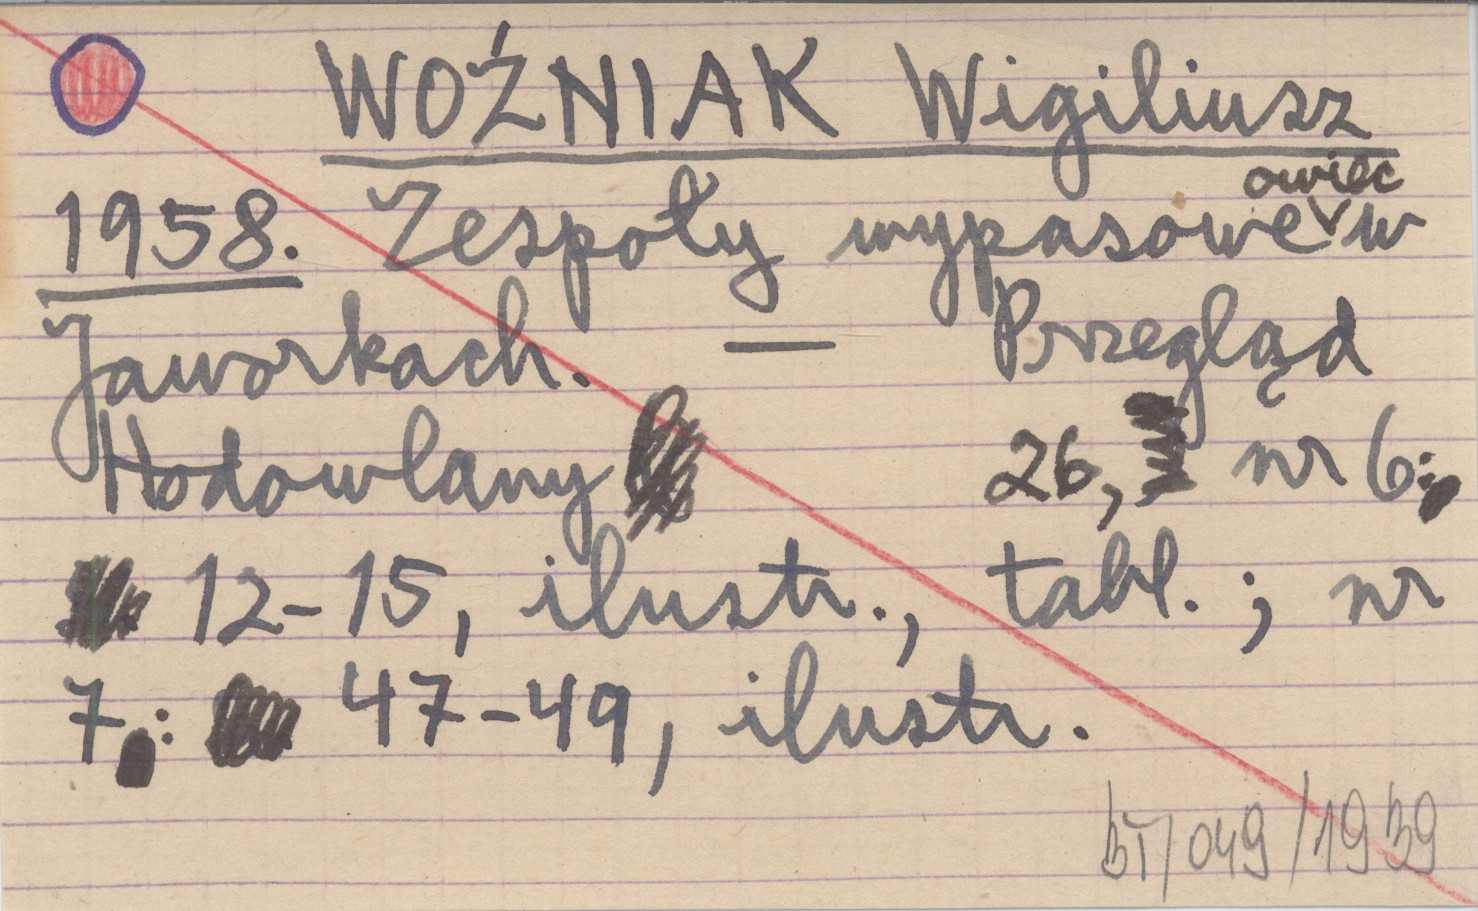 WOŹNIAK Wigiliusz
1958. Zespoły wypasowe owiec w
Jaworkach. — Przegląd
Hodowlany 26, nr 6:
12-15, ilustr., tabl. ; nr
7: 47-49, ilustr.
BT/049/1939